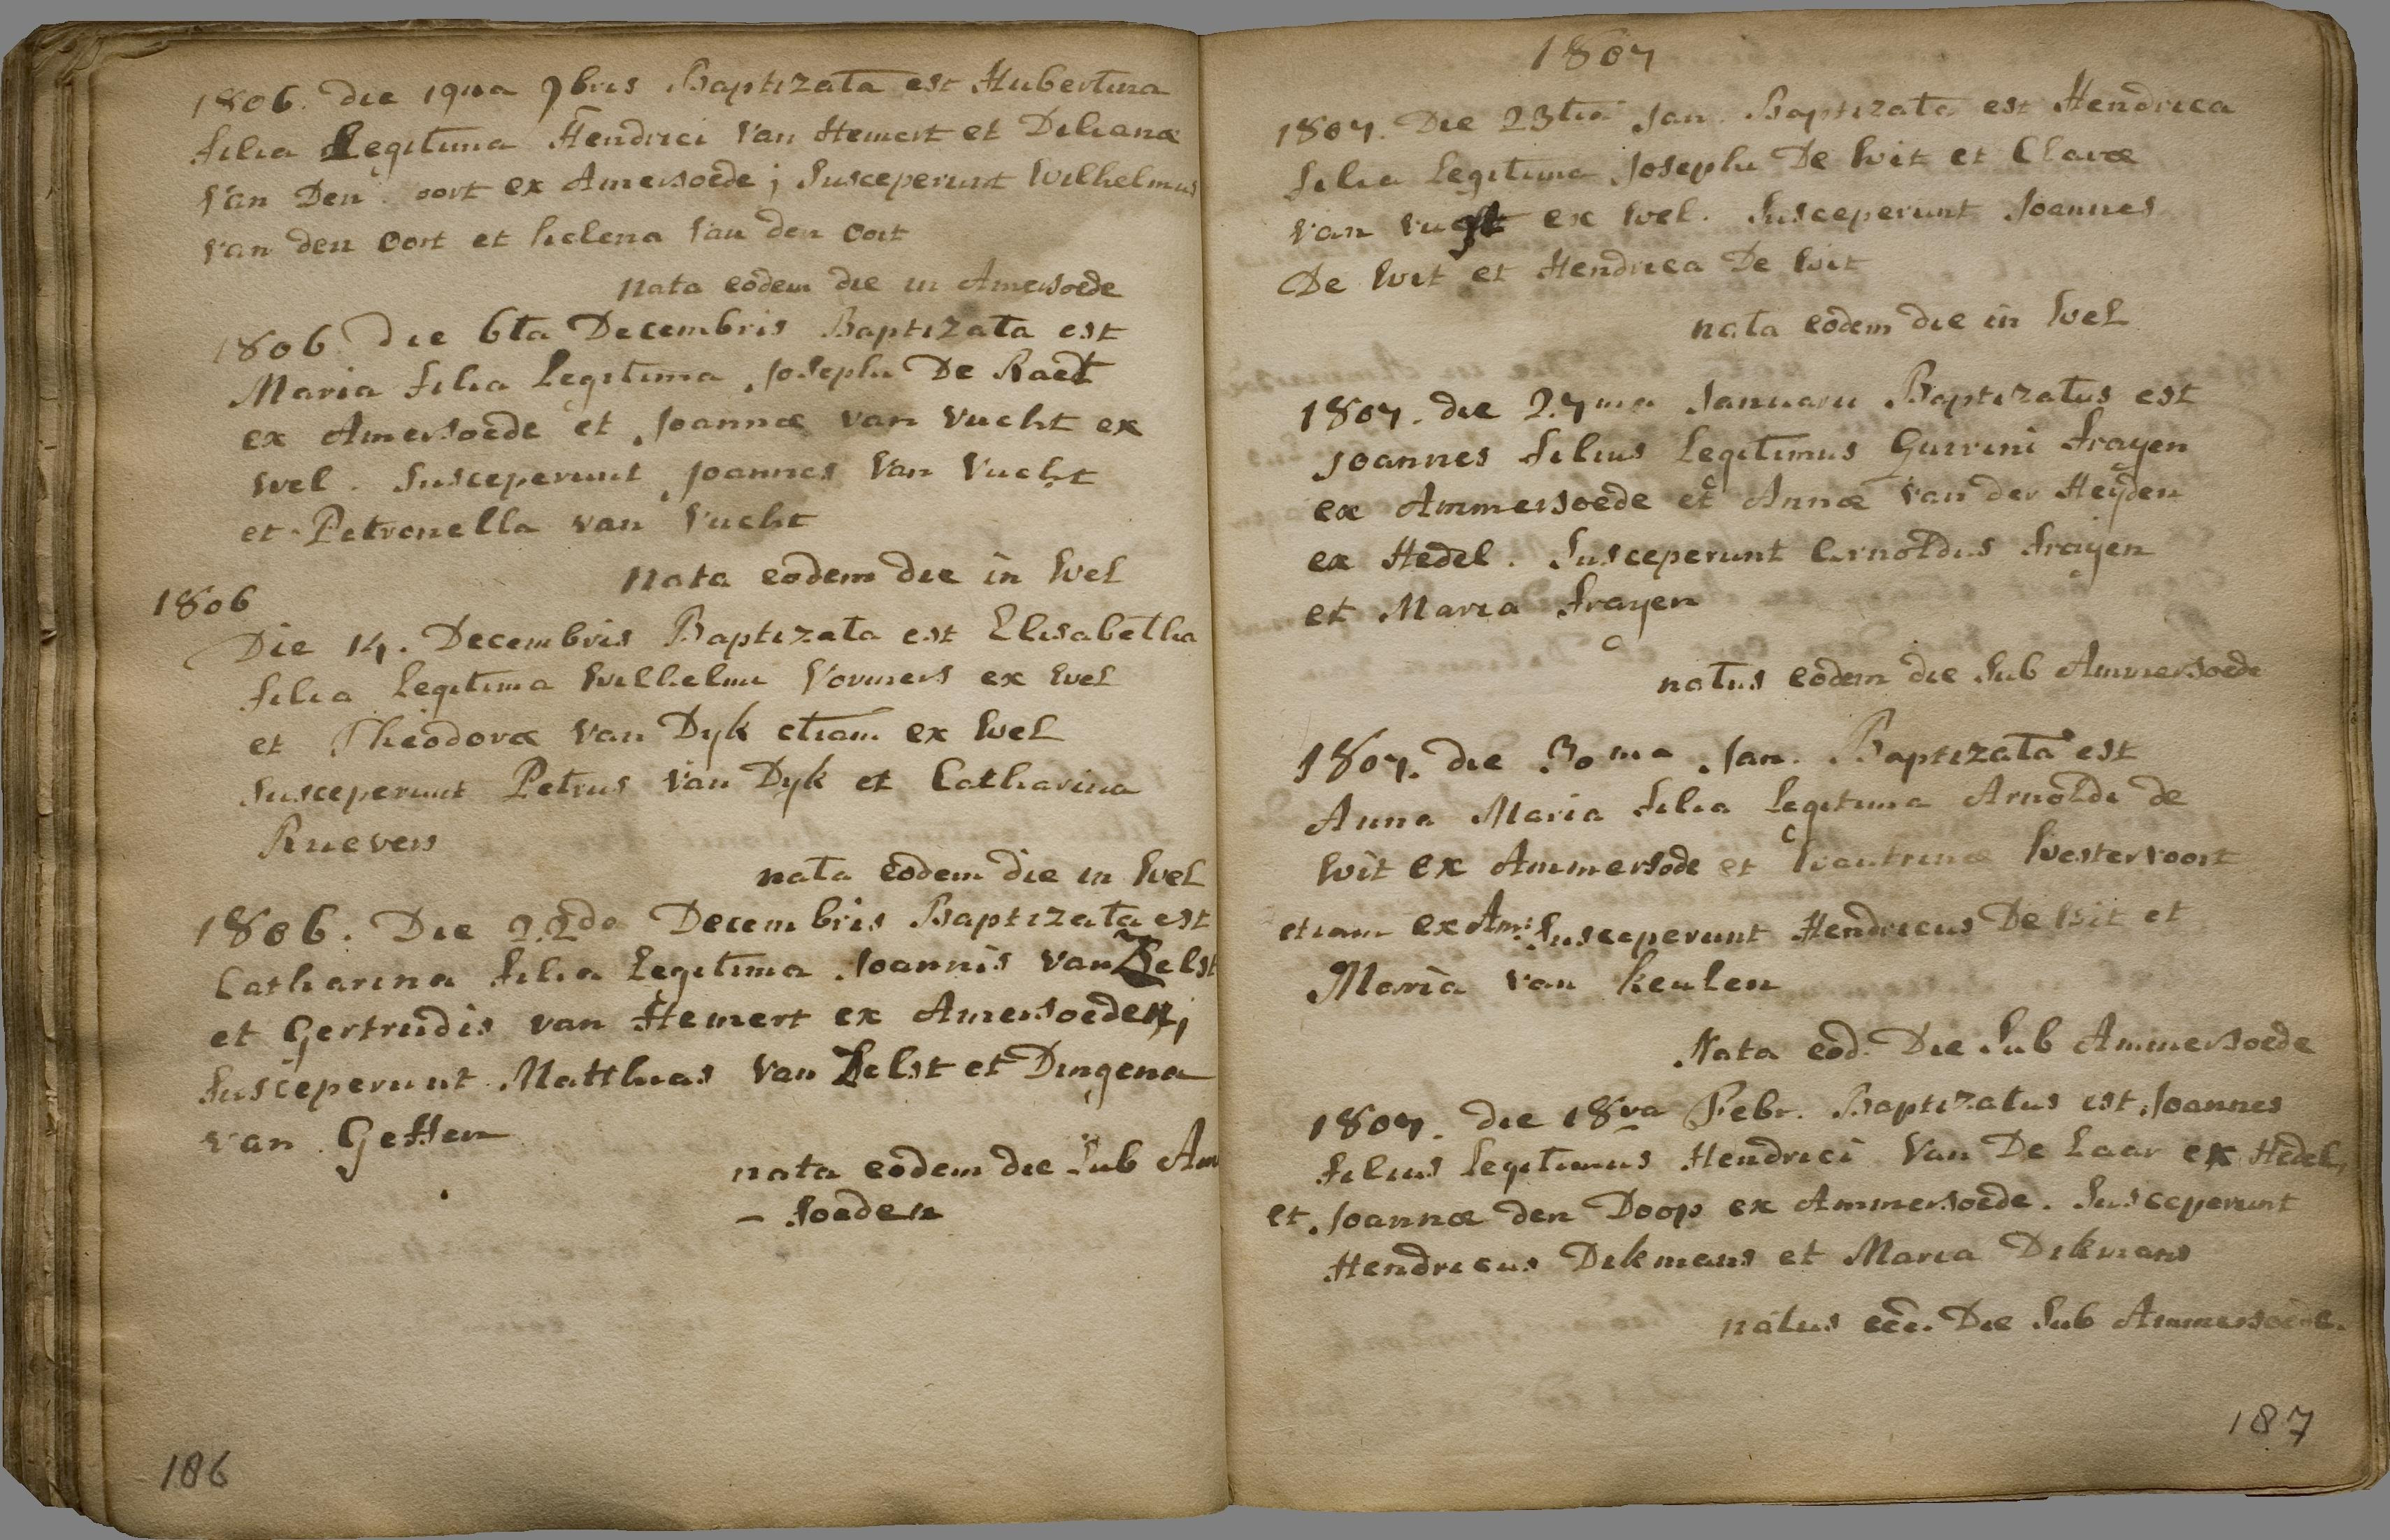 1806. die 19na 9bris Baptizata est Hubertina
filia Legitima Hendrici Van Hemert et Delianæ
Van Den oort ex Amersoede; Susceperunt Wilhelmus
van den Oort et helena Van den Oort
Nata eodem die in Amersoede
1806 die 6ta Decembris Baptizata est
Maria filia Legitima Josephi De Raedt
ex Amersoede et Joannæ van Vucht ex
Wel. Susceperunt Joannes Van Vucht
et Petronella van Vucht
Nata eodem die in Wel
1806
Die 14. Decembris Baptizata est Elisabetha
filia Legitima Wilhelmi Vormers ex Wel
et Theodoræ Van Dyk etiam ex Wel
Susceperunt Petrus Van Dyk et Catharina
Ruevers
nata eodem die in Wel
1806. Die 22da Decembris Baptizata est
Catharina filia Legitima Joannis van Zelst
et Gertrudis van Hemert ex Amersoeden;
Susceperunt Matthias Van Zelst et Dingena
van Geffen
nata eodem die Sub Am
- soeden
186
1807
1807. Die 23tia Jan. Baptizata est Hendrica
filia Legitima Josephi De Wit et Claræ
van ex Wel. Susceperunt Joannes
De Wit et Hendrica De Wit
nata eodem die in Wel
1807. die 27ma Januarii Baptizatus est
Joannes filius Legitimus Guirini frayen
ex Ammersoede et Annæ Van der Heyden
ex Hedel. Susceperunt Arnoldus frayen
et Maria frayen
natus eodem die Sub Ammersoede
1807. die 30ma Jan. Baptizata est
Anna Maria filia Legitima Arnoldi de
Wit ex Ammersode et Westervoort
etiam ex Am: Susceperunt Hendricus De Wit et
Maria van Keulen
Nata eod. Die Sub Ammersoede
1807. die 18va Febr. Baptizatus est Joannes
filius Legitimus Hendrici Van De Laar ex Hedel,
et Joannæ den Doop ex Ammersoede. Susceperunt
Hendricus Dikmans et Maria Dikmans
natus Die Sub Ammersoede.
187